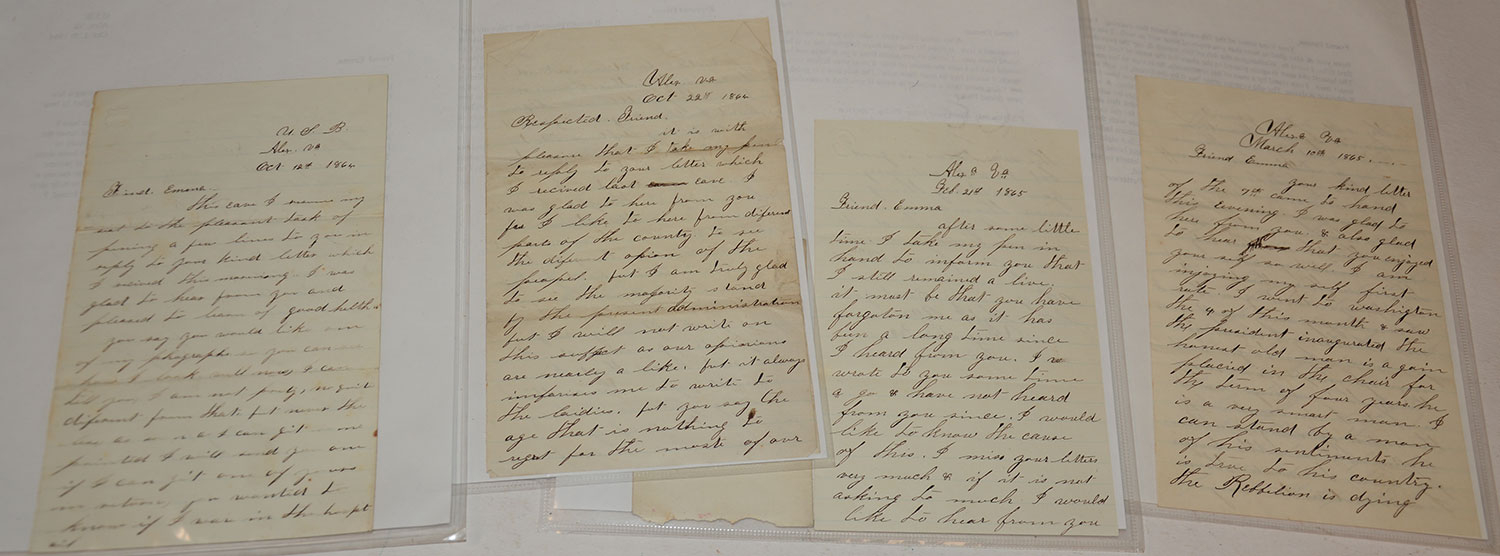 U S B.
Alex. Va
Oct 12th 1864
Friend. Emma.
This eave I resume my
set to the pleasant task of
pening a few lines to you in
reply to your kind letter which
I recived this morning. I was
glad to hear from you and
pleased to learn of good health.
you say you would like one
of my phographs so you can see
how I look well now, I can
tell you, I am not prety, no quit
diferent from that. but now the
as I can git one
printed I will send you one
if I can git one of yours
in return, you wanted to
know if I was in the hospt
Alex. Va
Oct 22d 1864
Respected. Friend.
it is with
pleasure that I take my pen
to reply to your letter which
I recived last eave. I
was glad to here from you
for I like to here from diferent
parts of the country to see
the diferent opion of the
peopel. but I am truly glad
to see the majority stand
by the present administration
but I will not write on
this subject as our opinions
are nearly a like. but it always
me to write to
the laidies. but you say the
age that is nothing to
regret for the moste of our
Alex.a Va
Feb. 21st 1865
Friend. Emma
after some little
time I take my pen in
hand to inform you that
I still remained a live,
it must be that you have
forgoton me as it has
bin a long time since
I heard from you. I
wrote to you some time
a go & have not heard
from you since. I would
like to know the cause
of this. I miss your letters
very much & if it is not
asking to much I would
like to hear from you
Alex.a Va
March 10th 1865.
Friend Emma
your kind letter
of the 7th came to hand
this evening. I was glad to
here from you. & also glad
to hear that you enjoyed
your self so well. I am
injoying my self first
rate I went to washigton
the 4 of this month & saw
the president inaugurated the
honest old man is a gain
placed in the chair for
the term of four years. he
is a very smart man. I
can stand by a man
of his sentiments he
is true to his country.
the Rebbelion is dying